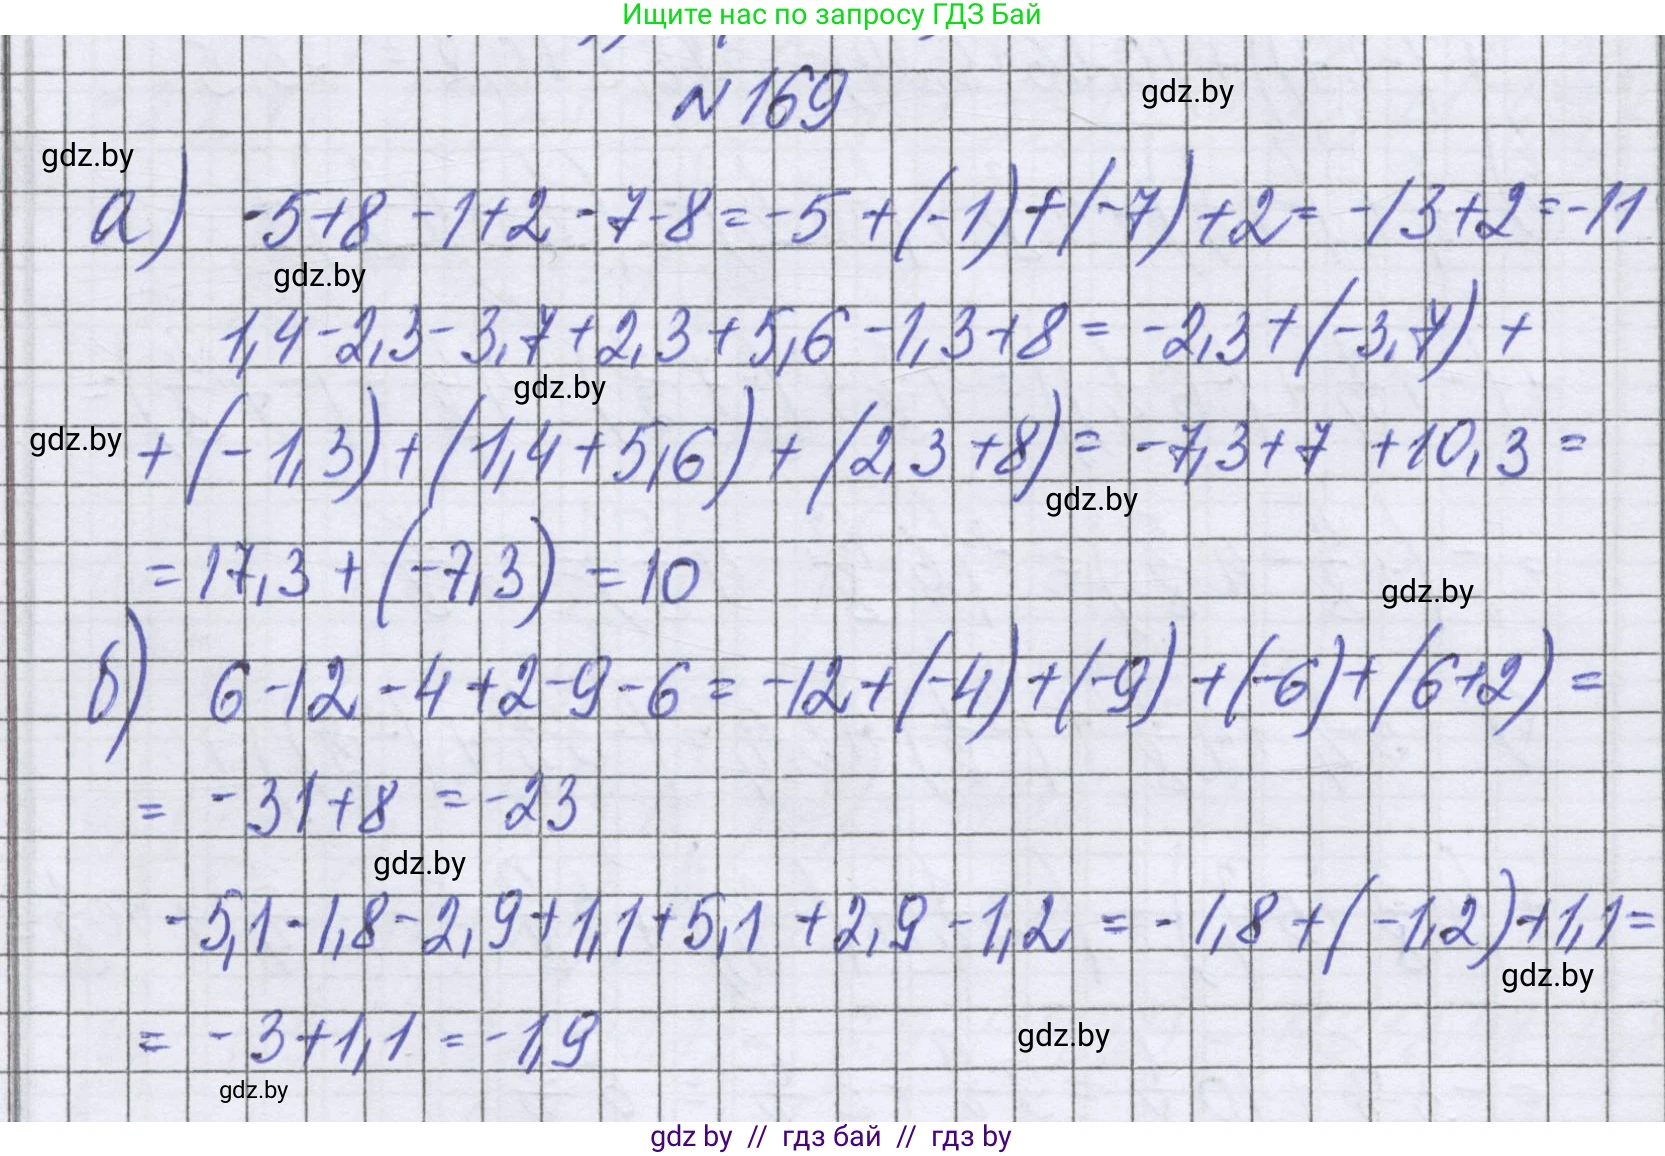 Ищите нас по запросу ГДЗ Бай
№169
gdz.by
gdz.by
а) -5+8-1+2-7-8=-5+(-1)+(-7)+2=-13+2=-11
gdz.by
1,4-2,3-3,7+2,3+5,6-1,3+8=-2,3+(-3,7)+
gdz.by
gdz.by
+(-1,3)+(1,4+5,6)+(2,3+8)=-7,3+7+10,3=
gdz.by
=17,3+(-7,3)=10
gdz.by
б) 6-12-4+2-9-6=-12+(-4)+(-9)+(-6)+(6+2)=
=-31+8=-23
gdz.by
-5,1-1,8-2,9+1,1+5,1+2,9-1,2=-1,8+(-1,2)+1,1=
gdz.by
=-3+1,1=-1,9
gdz.by
gdz.by
gdz by // гдз бай // гдз by